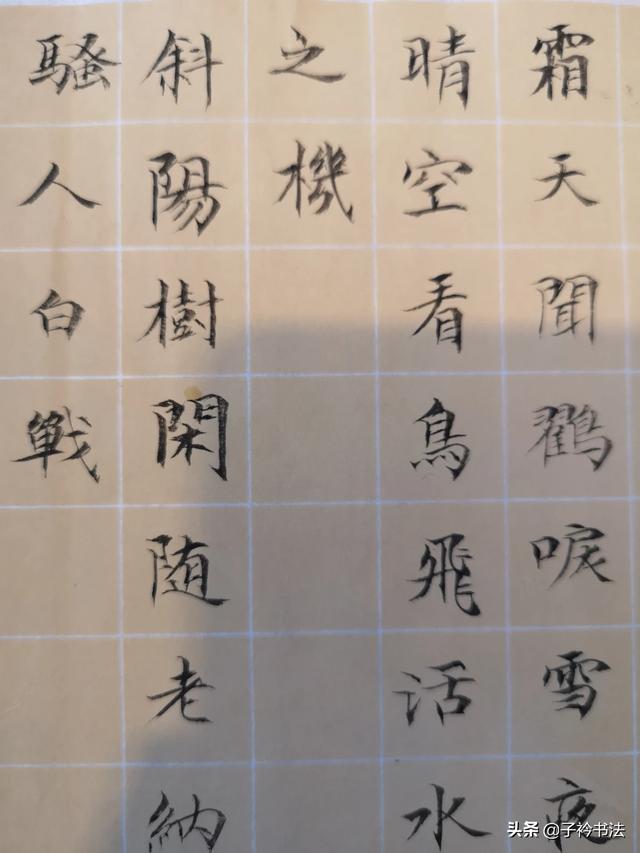 霜天聞鶴唳雪夜
晴空看鳥飛活水
之機
斜陽樹閑随老納
騷人白戰
头条 @子衿书法